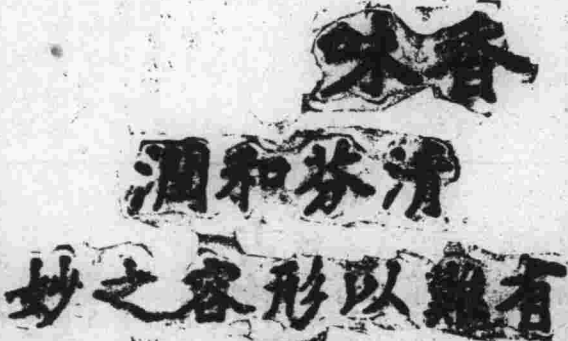 香味
清芬和潤
有難以形容之妙